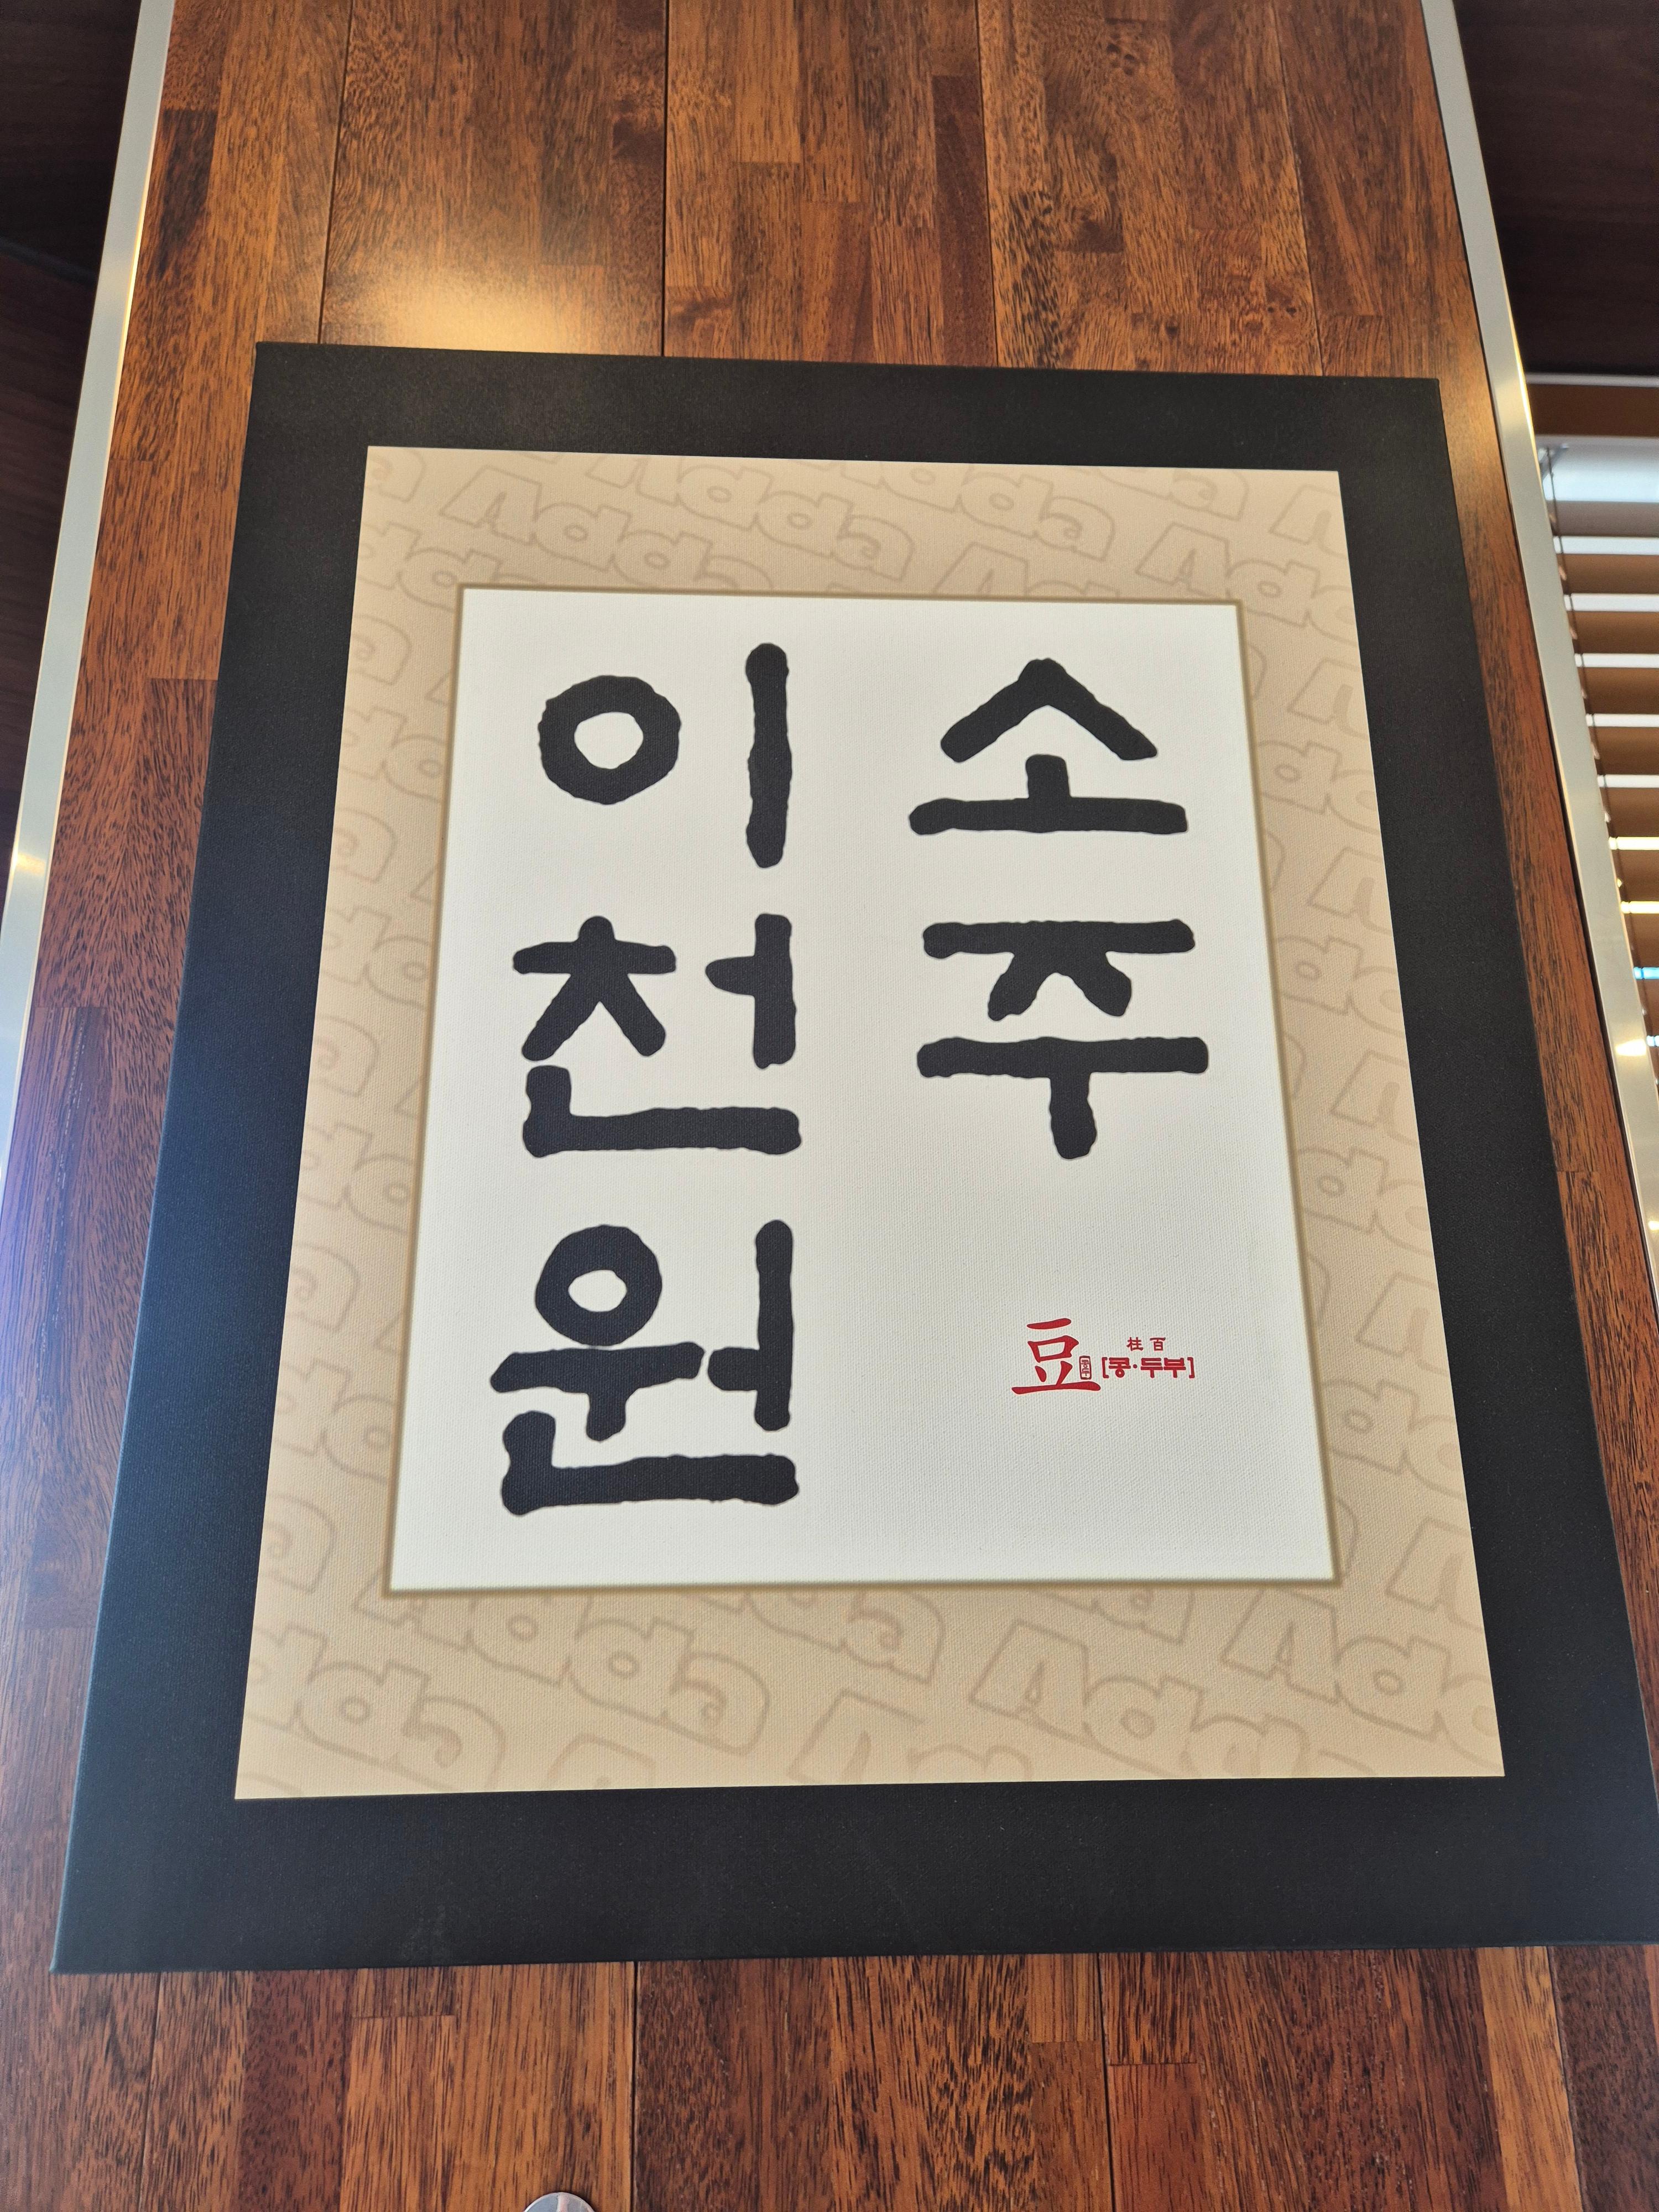 소주
이천원
豆
[콩·두부]